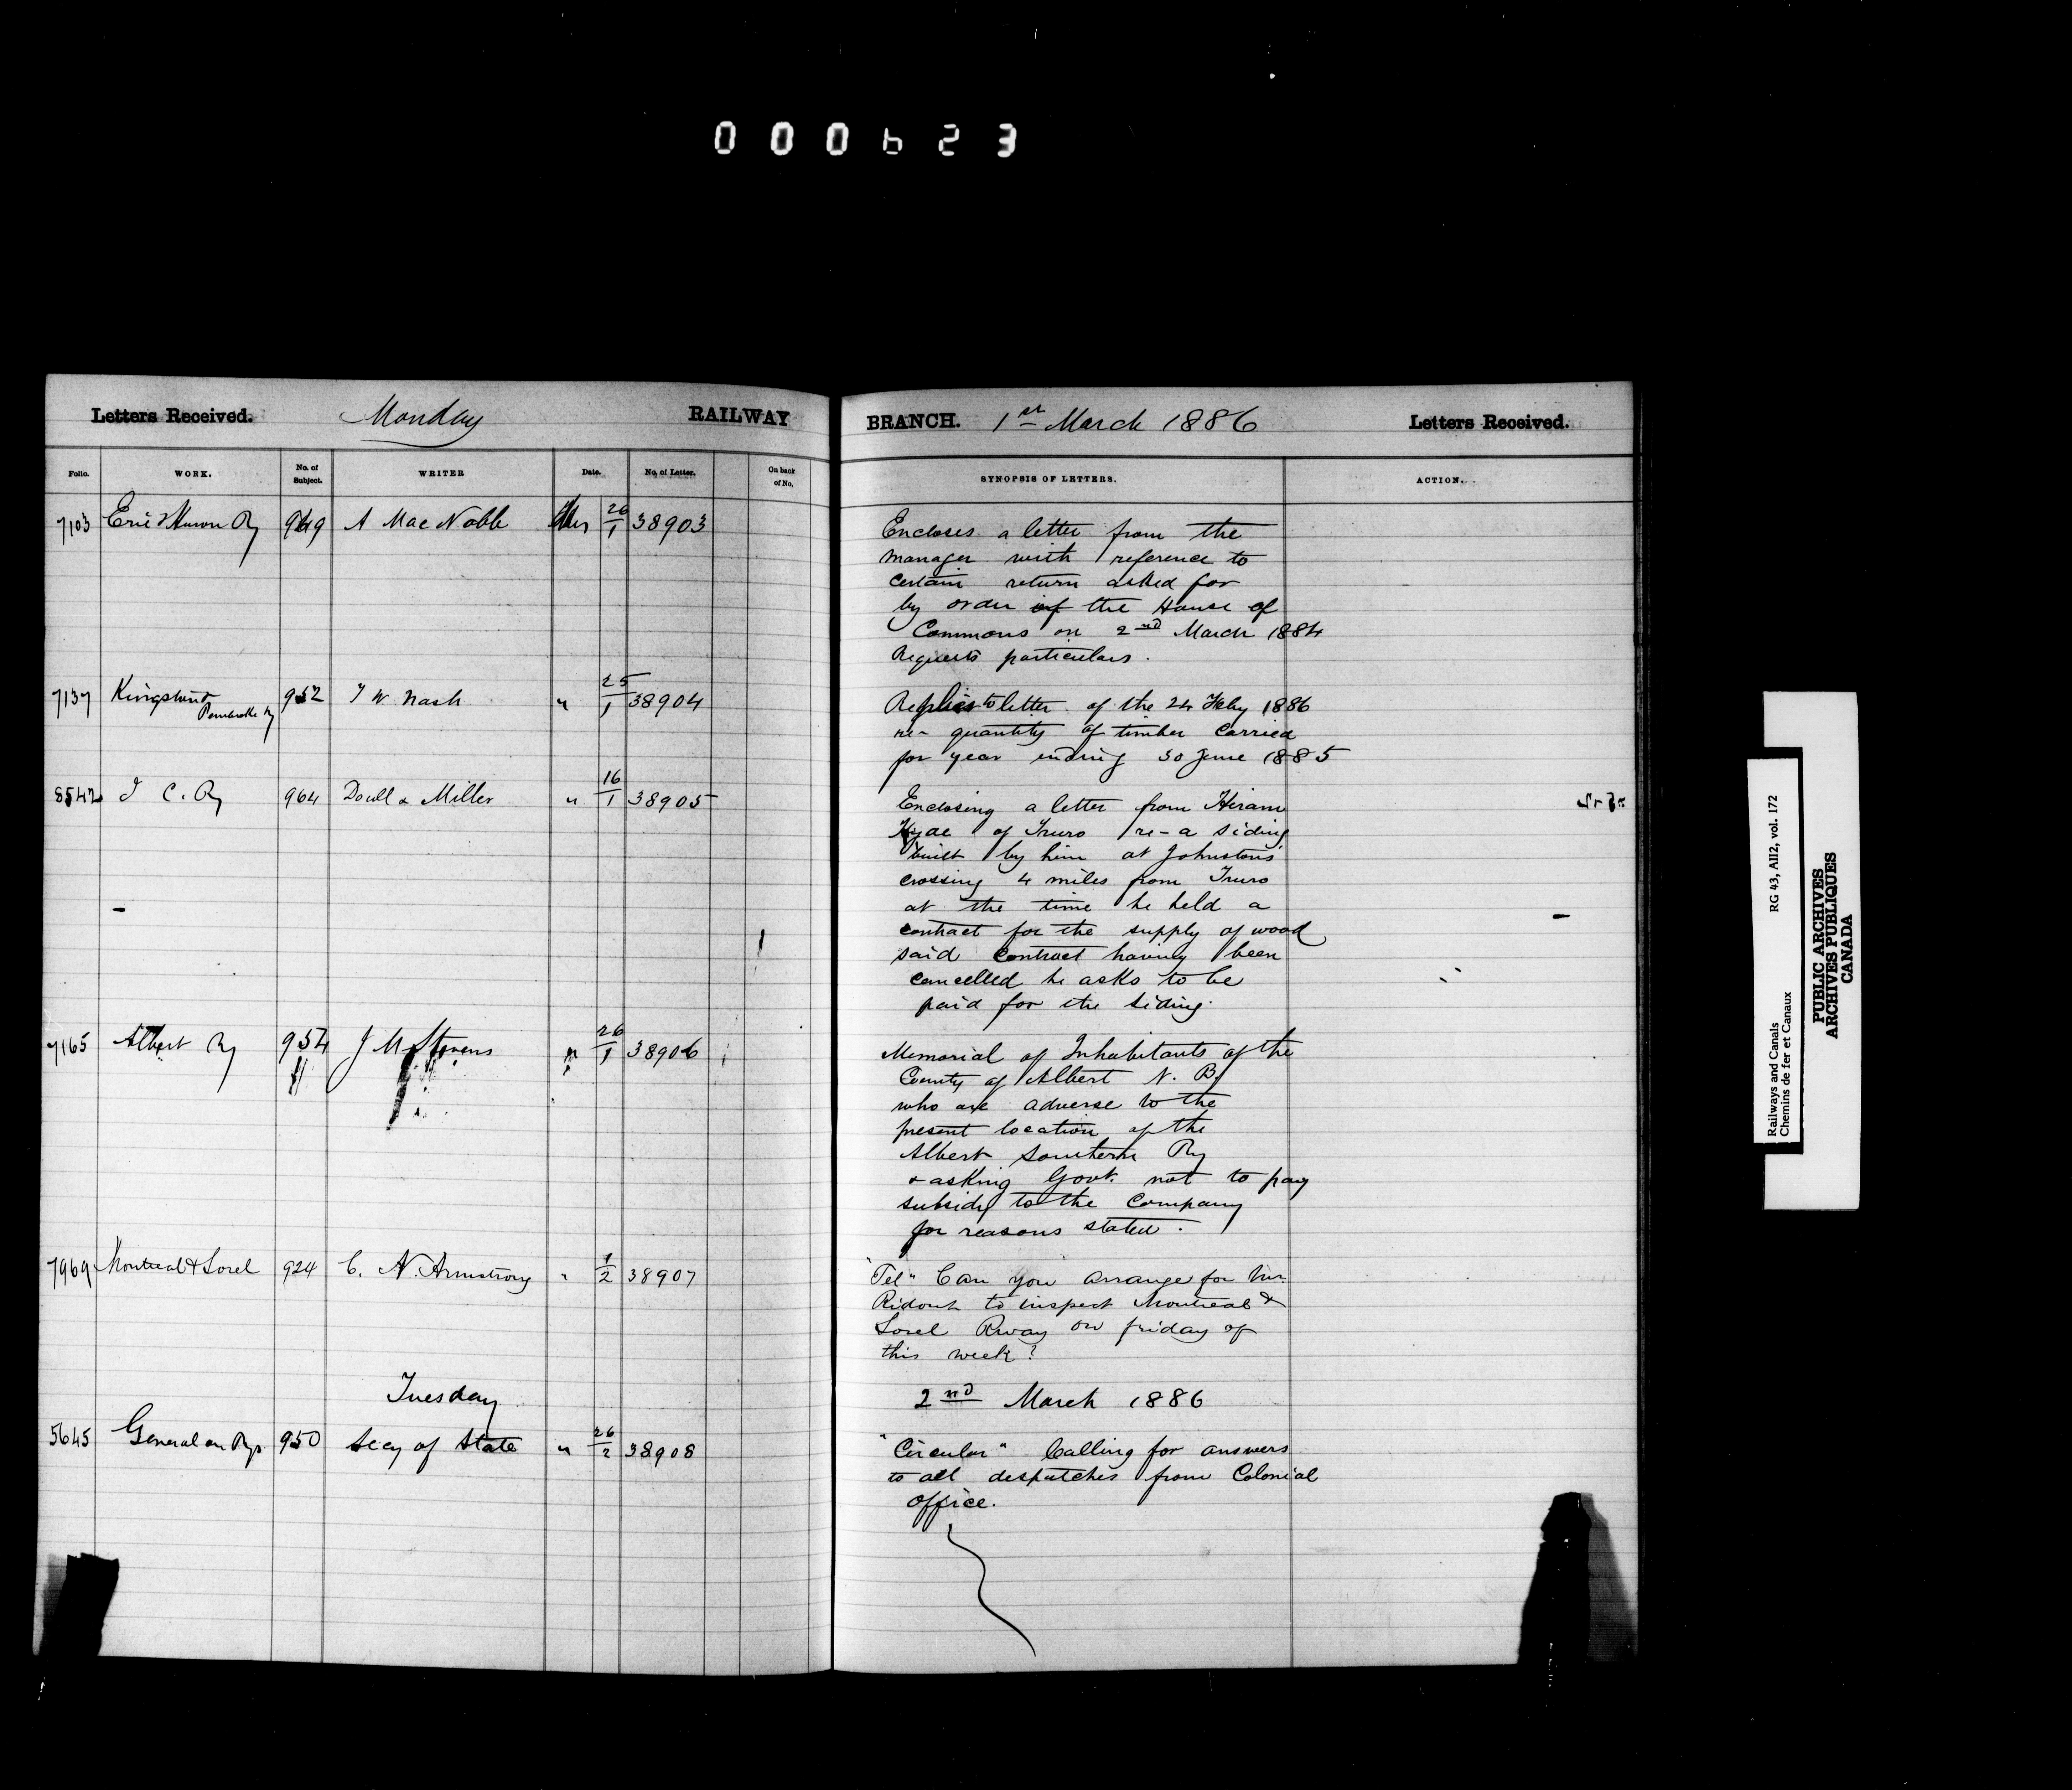 000623
Letters Received. Monday RAILWAY
Folio. WORK. No. of Subject. WRITER Date. No. of Letter. On back of No.
7103 Erie & Huron Ry 969 A Mac Nabb 26/1 38903
7137 Kingston & Pembroke Ry 952 T W Nash " 25/1 38904
8542 I C. Ry 964 Doull & Miller " 16/1 38905
7165 Albert Ry 954 J M Stevens " 26/1 38906
7969 Montreal & Sorel 924 C. N. Armstrong " 1/2 38907
Tuesday
5645 General on Rys. 950 Secy of State " 26/2 38908
BRANCH. 1st March 1886 Letters Received.
SYNOPSIS OF LETTERS. ACTION.
Encloses a letter from the
manager with reference to
certain return asked for
by order of the House of
Commons on 2nd March 1884
Requests particulars.
Replies to letter of the 24 Feby 1886
re- quantity of timber carried
for year ending 30 June 1885
Enclosing a letter from Hiram
Hyde of Truro re- a siding
built by him at Johnstons
crossing 4 miles from Truro
at the time he held a
contract for the supply of wood
said contract having been
cancelled he asks to be
paid for the siding.
Memorial of Inhabitants of the
County of Albert N. B.
who are adverse to the
present location of the
Albert Southern Ry
& asking Govt. not to pay
subsidy to the Company
for reasons stated.
"Tel" Can you arrange for Mr.
Ridout to inspect Montreal &
Sorel Rway on friday of
this week?
2nd March 1886
"Circular" Calling for answers
to all despatches from Colonial
office.
Railways and Canals RG 43, AII2, vol. 172
Chemins de fer et Canaux
PUBLIC ARCHIVES
ARCHIVES PUBLIQUES
CANADA